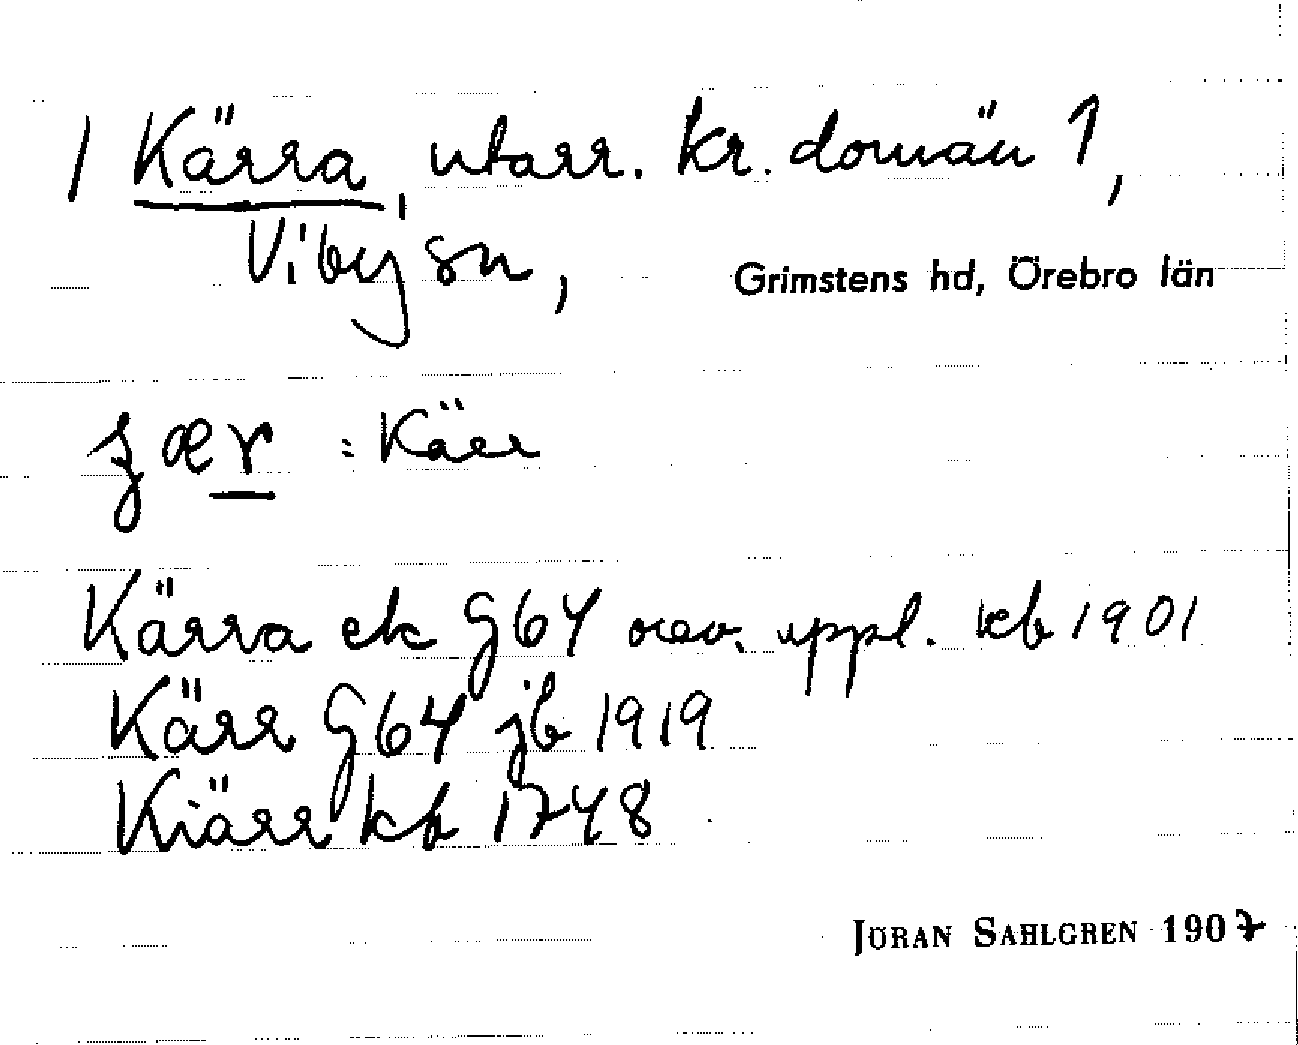 / Kärra, utarr. kr. domän 1,
Viby sn, Grimstens hd, Örebro län
: Kärr
Kärra ek G64 rev. uppl. kb 1901
Kärr G64 jb 1919
Kiärr kb 1748
JÖRAN SAHLGREN 1907